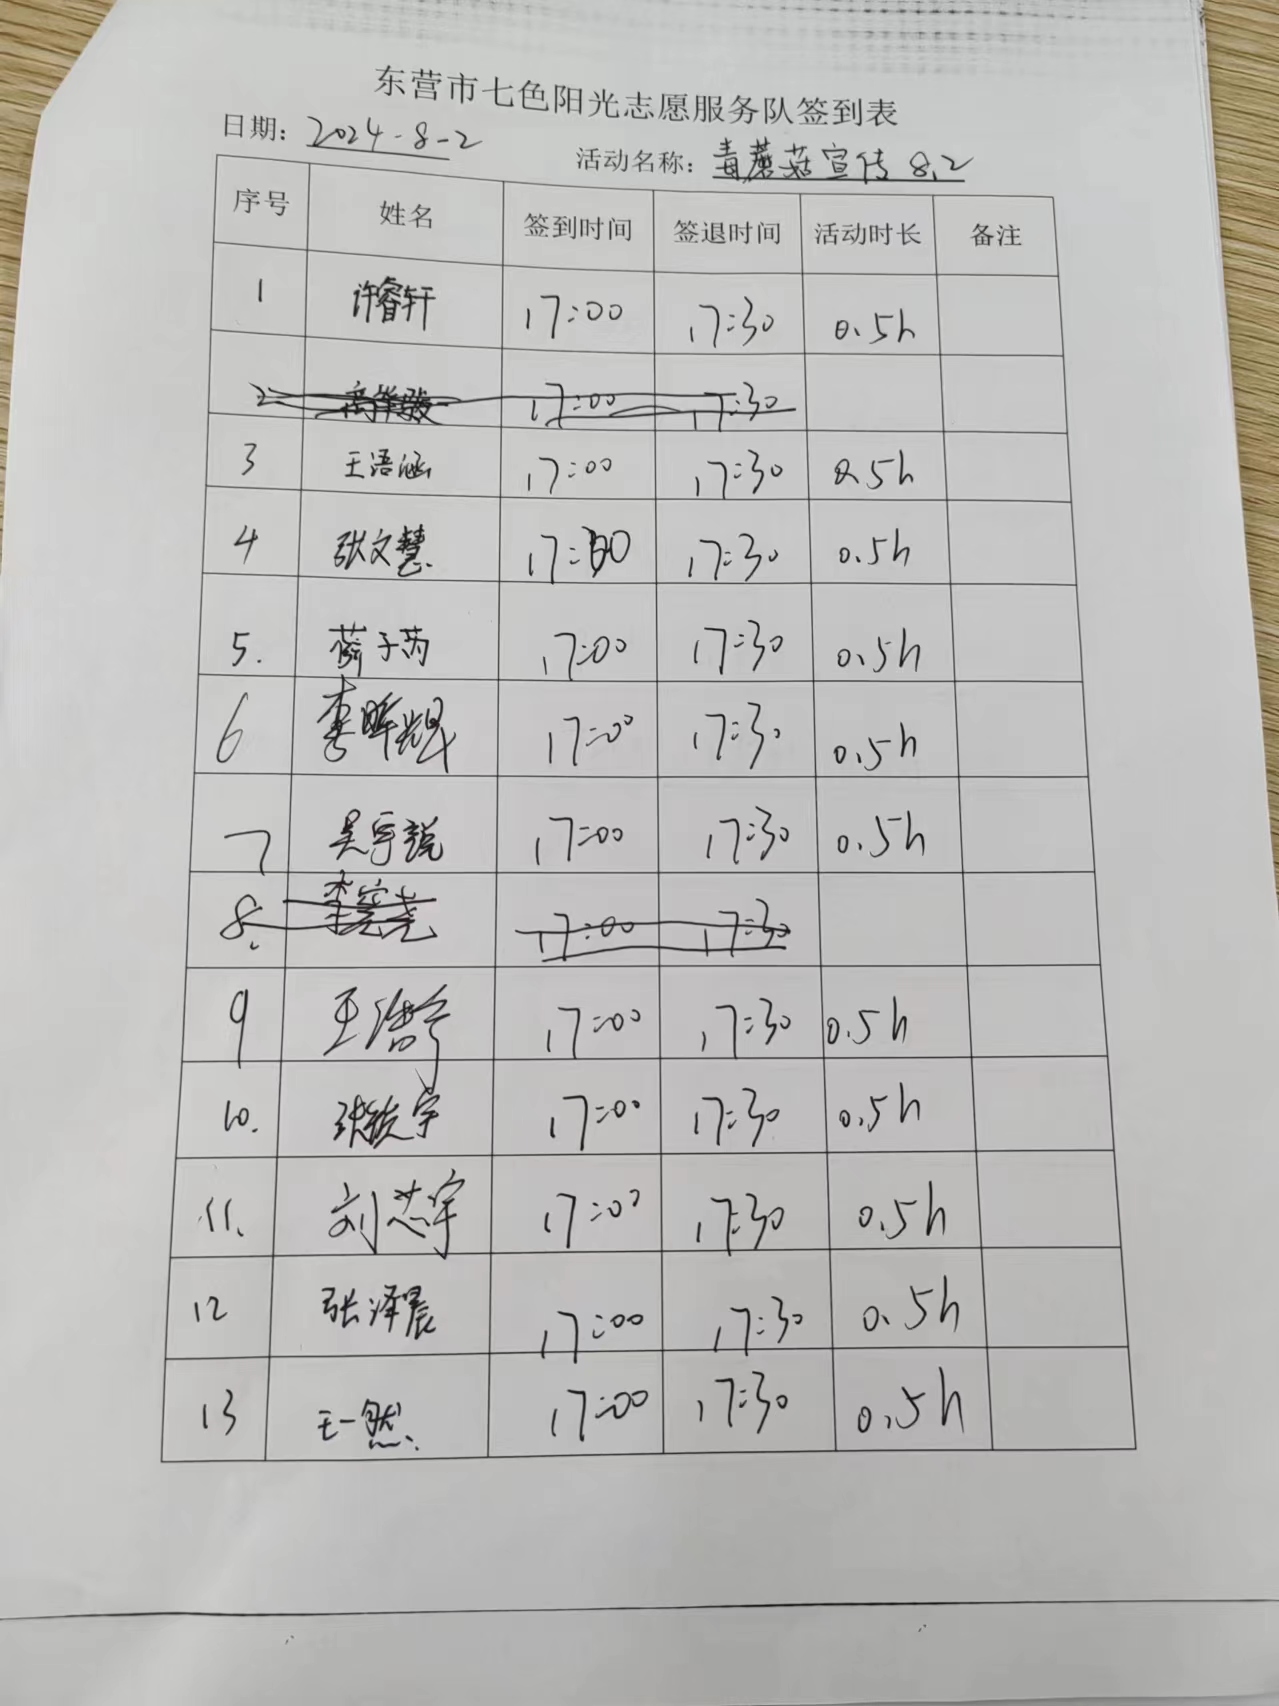 东营市七色阳光志愿服务队签到表
日期：2024-8-2 活动名称：毒蘑菇宣传 8.2
序号 姓名 签到时间 签退时间 活动时长 备注
1 许睿轩 17:00 17:30 0.5h
2 17:00 17:30
3 王语涵 17:00 17:30 0.5h
4 张文慧 17:00 17:30 0.5h
5. 子芮 17:00 17:30 0.5h
6 李晖焜 17:00 17:30 0.5h
7 吴宇锐 17:00 17:30 0.5h
8. 17:00 17:30
9 王 17:00 17:30 0.5h
10. 宇 17:00 17:30 0.5h
11. 刘芯宇 17:00 17:30 0.5h
12 张泽晨 17:00 17:30 0.5h
13 王一然 17:00 17:30 0.5h